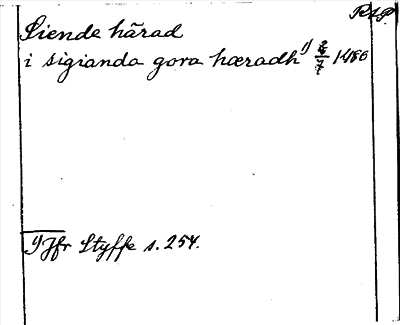 RAP.
Siende härad
i sigianda gora hæradh 1) 2/7 1486
1) Jfr Styffe s. 254.